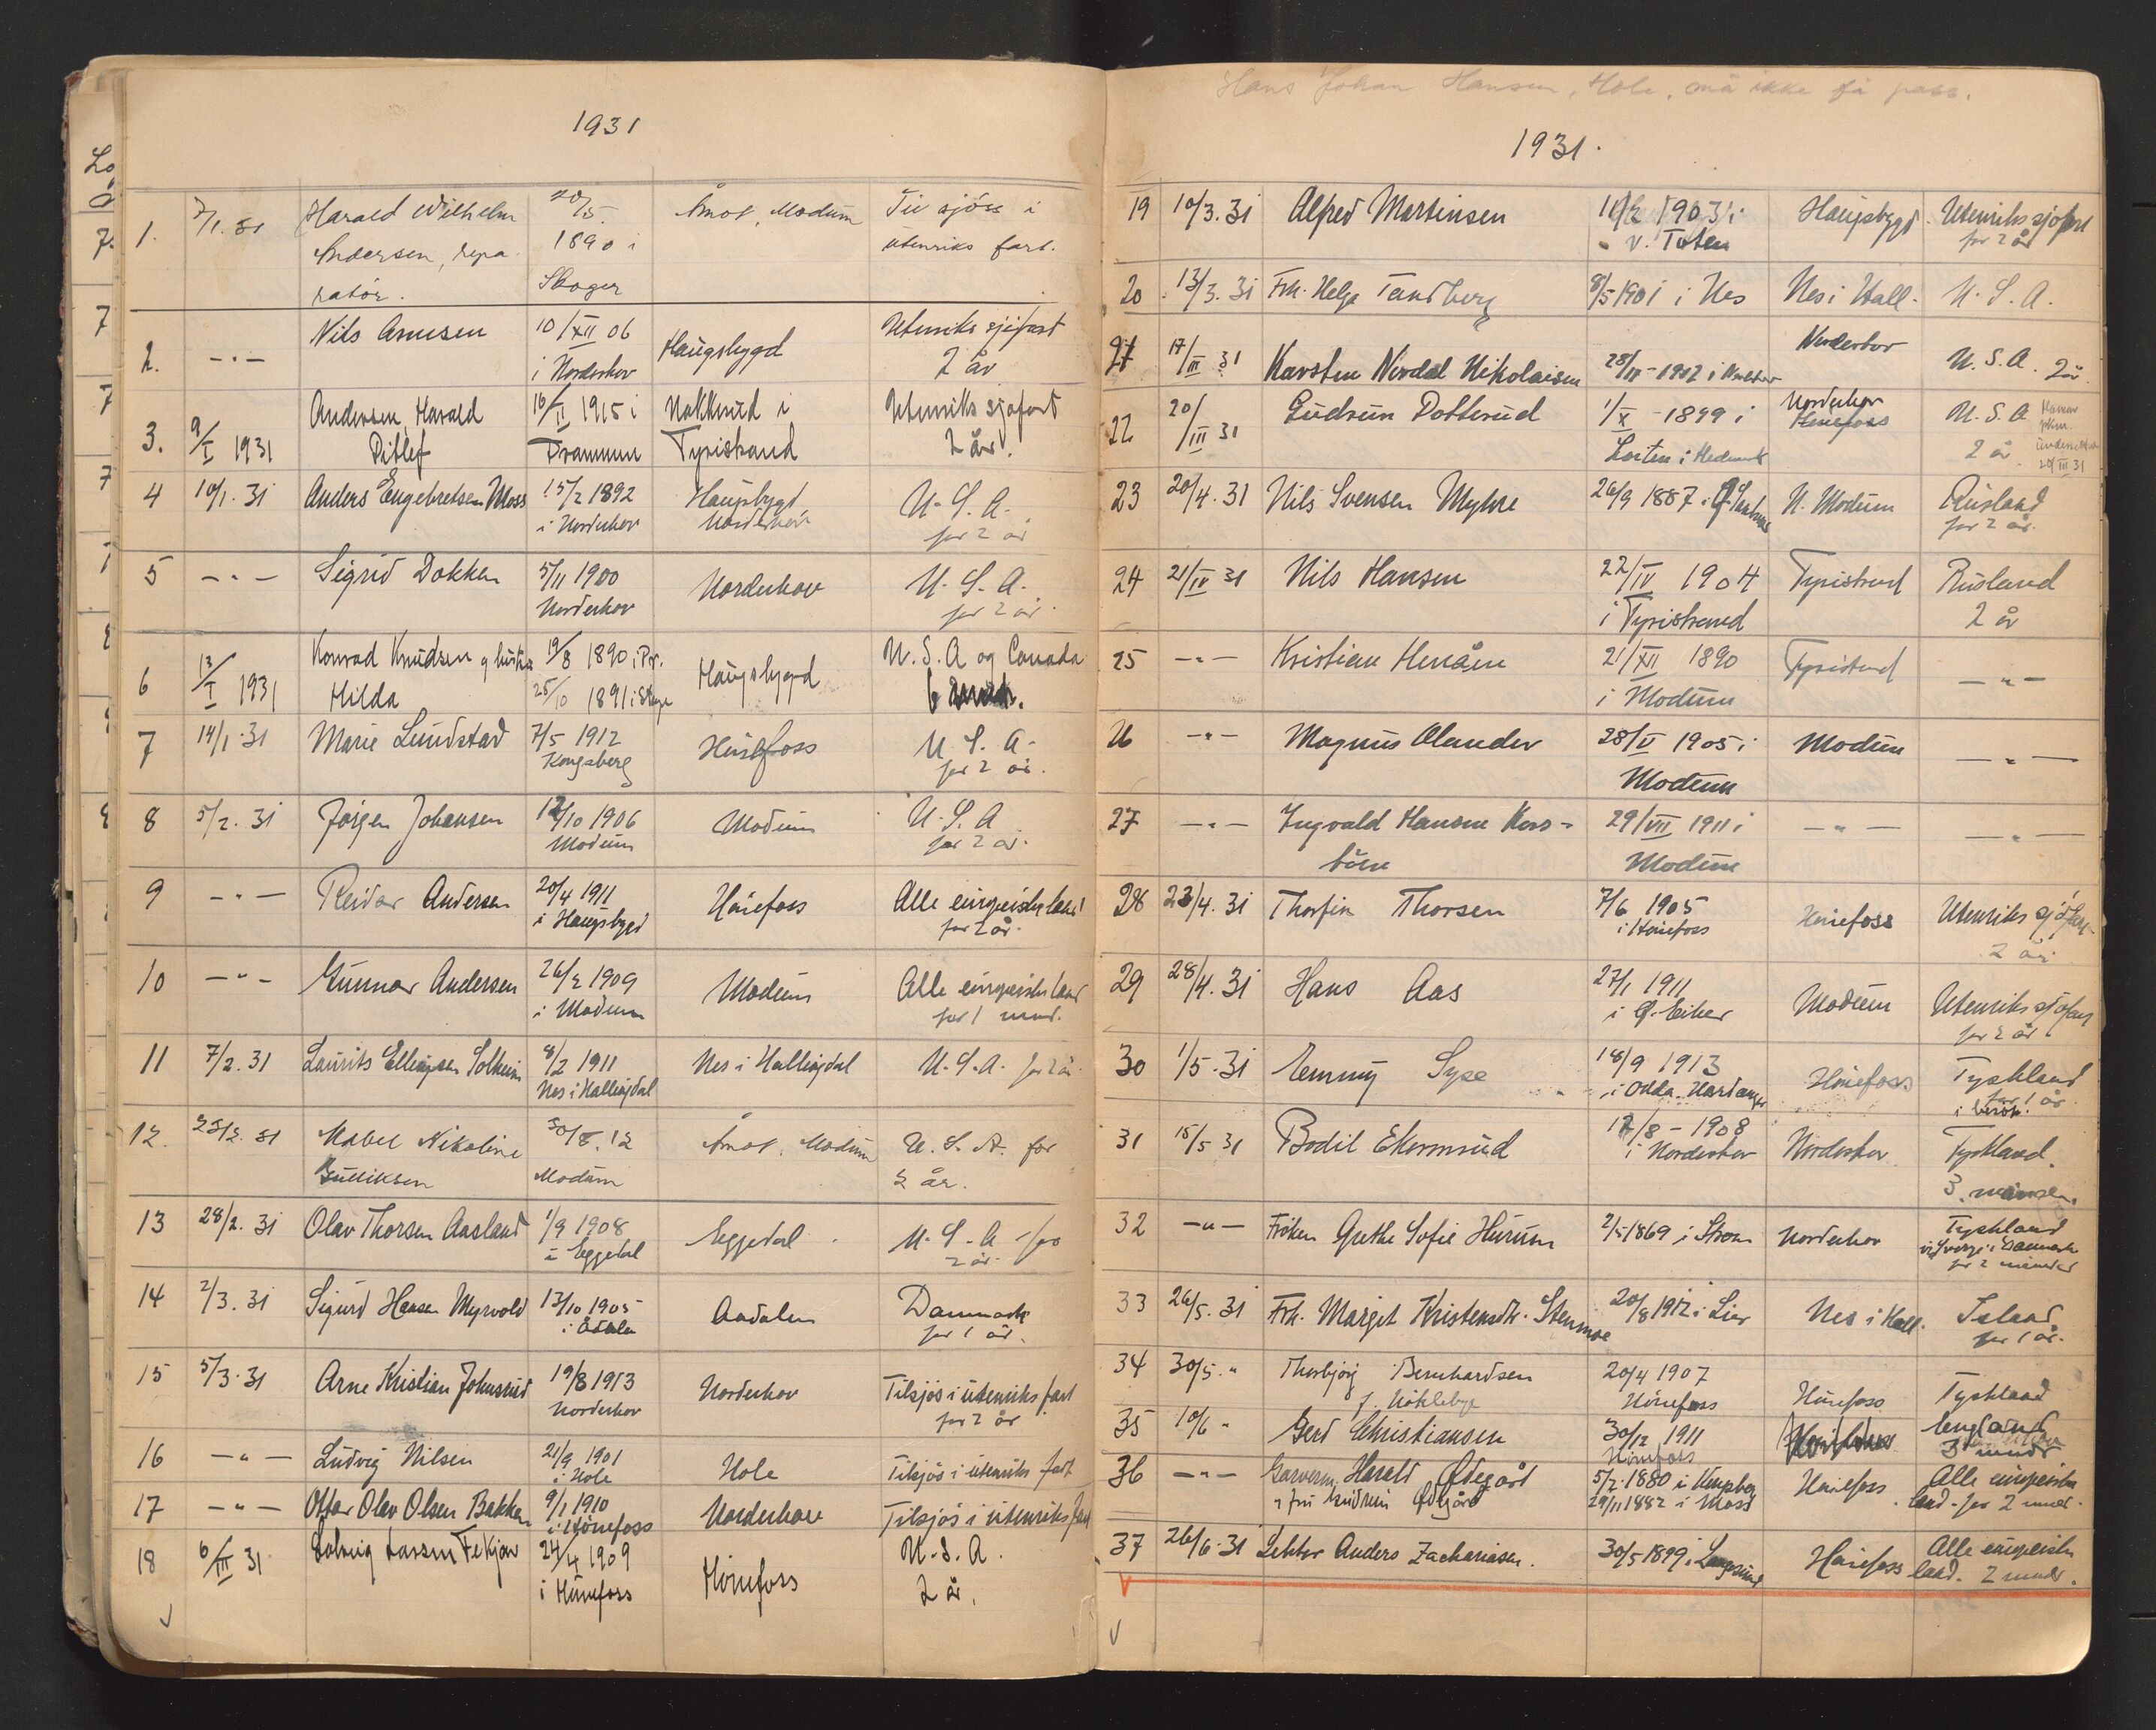 1931
1. 7/1. 31 Harald Wilhelm 20/5. Åmot, Modum Til sjöss i
Andersen, repa- 1890 i utenriks fart.
ratör. Skoger
2. -"- Nils Arnesen 10/XII 06 Haugsbygd Utenriks sjöfart
i Norderhov 2 år
3. 9/I 1931 Andersen, Harald 16/II 1915 i Nakkerud i Utenriks sjøfart
Ditlef Drammen Tyristrand 2 år.
4 10/1. 31 Anders Engebretsen Moss 15/2 1892 Haugsbygd U.S.A.
i Norderhov Norderhov for 2 år
5 -"- Sigrid Dokken 5/11 1900 Norderhov U.S.A.
Norderhov for 2 år.
6 13/I 1931 Konrad Knudsen og hustru 19/8 1890 i Haugsbygd U.S.A og Canada
Hilda 25/10 1891 i 6
7 14/1. 31 Marie Lundstad 7/5 1912 Hönefoss U.S.A.
Kongsberg for 2 år.
8 5/2. 31 Jörgen Johansen 12/10 1906 Modum U.S.A
Modum for 2 år.
9 -"- Reidar Andersen 20/4 1911 Hönefoss Alle europeiske land
i Haugsbygd for 2 år.
10 -"- Gunnar Andersen 26/2 1909 Modum Alle europeiske land
i Modum for 1 mnd.
11 7/2. 31 Laurits Ellingsen Solheim 8/2 1911 Nes i Hallingdal U.S.A. for 2 år.
Nes i Hallingdal
12. 25/2. 31 Mabel Nikoline 30/8. 12 Åmot. Modum U.S.A. for
Gulliksen Modum 2 år.
13 28/2. 31 Olav Thorsen Aasland 1/9 1908 Eggedal U.S.A for
i Eggedal 2 år.
14 2/3. 31 Sigurd Hansen Myrvold 13/10 1905 Aadalen Danmark
i Ådalen for 1 år.
15 5/3. 31 Arne Kristian Johnsrud 19/8 1913 Norderhov Tilsjös i utenriks fart
Norderhov for 2 år
16 -"- Ludvig Nilsen 21/9 1901 Hole Tilsjös i utenriks fart
i Hole
17 -"- Ottar Olav Olsen Bakken 9/1 1910 Norderhov Tilsjös i utenriks fart
i Hönefoss
18 6/III 31 Solveig Larsen Fekjær 24/4 1909 Hönefoss U.S.A.
i Hönefoss 2 år.
Hans Johan Hansen, Hole, må ikke få pass.
1931.
19 10/3. 31 Alfred Martinsen 1903 i Haugsbygd. Utenriks sjöfart
v. Toten for 2 år
20 13/3. 31 Frk. Helga Tandberg 8/5 1901 i Nes Nes i Hall. U.S.A.
21 17/III 31 Karsten Nordal Nikolaisen 28/IV - 1902 i Norderhov Norderhov U.S.A. 2 år.
22 20/III 31 Gudrun Dotterud 1/X - 1899 i Norderhov U.S.A
Löiten i Hedmark Hönefoss 2 år 20/III 31
23 20/4. 31 Nils Svensen Myhre 26/9 1887 i N. Modum Rusland
for 2 år.
24 21/IV 31 Nils Hansen 22/IV 1904 Tyristrand Rusland
i Tyristrand 2 år
25 -"- Kristian Henåen 21/XII 1890 Tyristrand -"-
i Modum
26 -"- Magnus Olander 28/V 1905 i Modum -"-
Modum
27 -"- Ingvald Hansen Kors- 29/VII 1911 i -"- -"-
böen Modum
28 23/4. 31 Thorfin Thorsen 7/6 1905 Hönefoss Utenriks sjöfart
i Hönefoss 2 år.
29 28/4. 31 Hans Aas 27/1 1911 Modum Utenriks sjöfart
i Ø. Eiker for 2 år
30 1/5. 31 Emmy Syse 18/9 1913 Hönefoss Tyskland
i Odda Hardanger for 1 år.
i besök.
31 15/5 31 Bodil Ekornrud 12/8 - 1908 Norderhov Tyskland.
i Norderhov 3 måneder.
32 -"- Fröken Grethe Sofie Hurum 2/5 1869 i Strøm Norderhov Tyskland
Sverige Danmark
for 2 måneder
33 26/5. 31 Frk. Margit Kristensdtr. Stenmoe 20/8 1912 i Lier Nes i Hall. Island
for 1 år.
34 30/5. " Thorbjörg Bernhardsen 20/4 1907 Hönefoss Tyskland
f. Nöklebye Hönefoss
35 10/6 " Gerd Christiansen 30/12 1911 England
Hönefoss 3 mndr
36 -"- Garverm. Harald Ødegård 5/2. 1880 i Kongsberg Hönefoss Alle europeiske
fru Ødegård 29/11 1882 i Moss land. for 2 mndr.
37 26/6. 31 Lektor Anders Zachariasen. 30/5 1899 i Langesund Hönefoss Alle europeiske
land. 2 mndr.